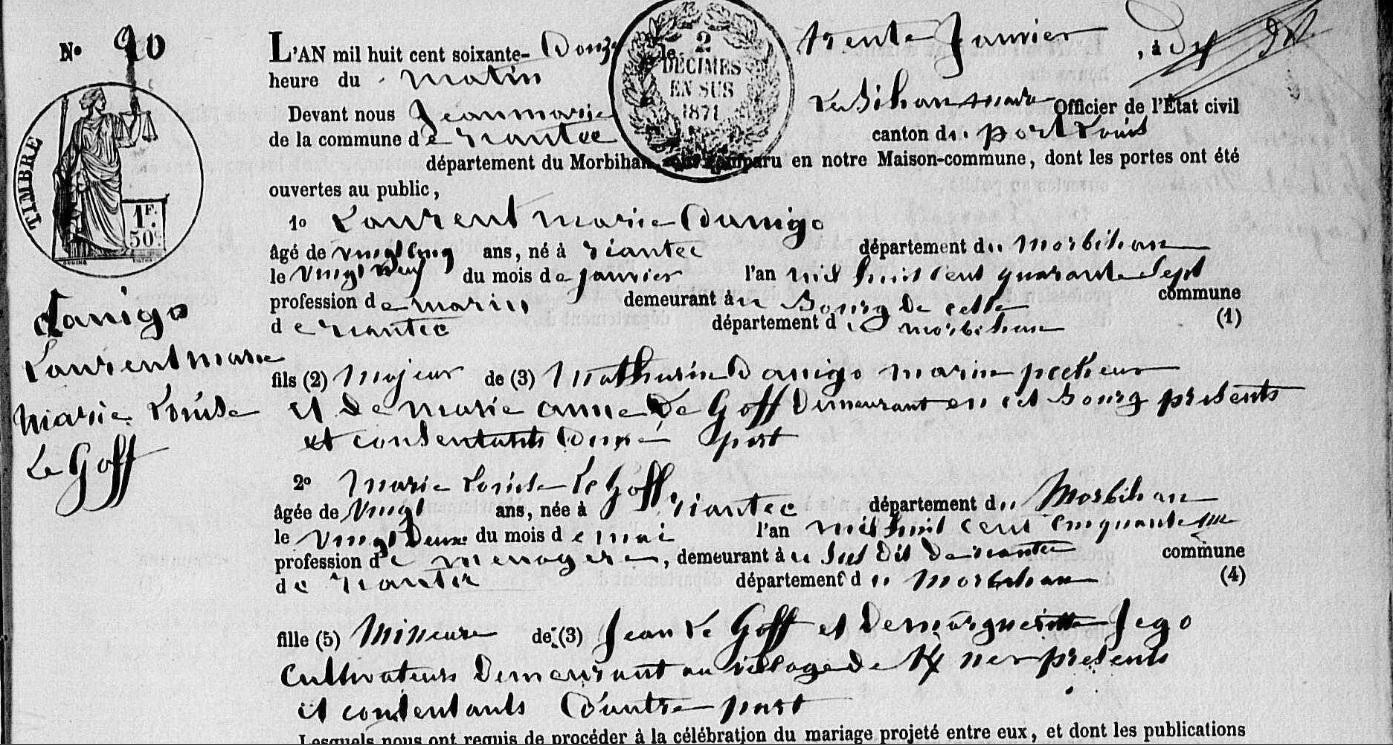 N° 20
L'AN mil huit cent soixante- Douze le trente Janvier , à dix
heure du matin
Devant nous Jean marie Le Bihan maire Officier de l'État civil
de la commune de riantec canton du port Louis
département du Morbihan, sont comparu en notre Maison-commune, dont les portes ont été
ouvertes au public,
1o Laurent marie Danigo
âgé de vingt cinq ans, né à riantec département du morbihan
le vingt deux du mois de janvier l'an mil huit cent quarante sept
profession de marin demeurant au Bourg de cette commune
de riantec département du morbihan (1)
fils (2) Majeur de (3) Mathurin Danigo marin pecheur
et de marie anne Le Goff Demeurant en cet Bourg presents
et consentants D'une part
2o Marie Louise Le Goff
âgée de vingt ans, née à riantec département du Morbihan
le vingt Deux du mois de mai l'an mil huit cent cinquante
profession de menagere, demeurant au sus dit de riantec commune
de riantec département du Morbihan (4)
fille (5) Mineure de (3) Jean Le Goff et De marguerite Jego
Cultivateurs Demeurant au village de presents
et consentants D'autre part
Lesquels nous ont requis de procéder à la célébration du mariage projeté entre eux, et dont les publications
TIMBRE
1F.
50c.
2
DÉCIMES
EN SUS
1871
Danigo
Laurent marie
Marie Louise
Le Goff